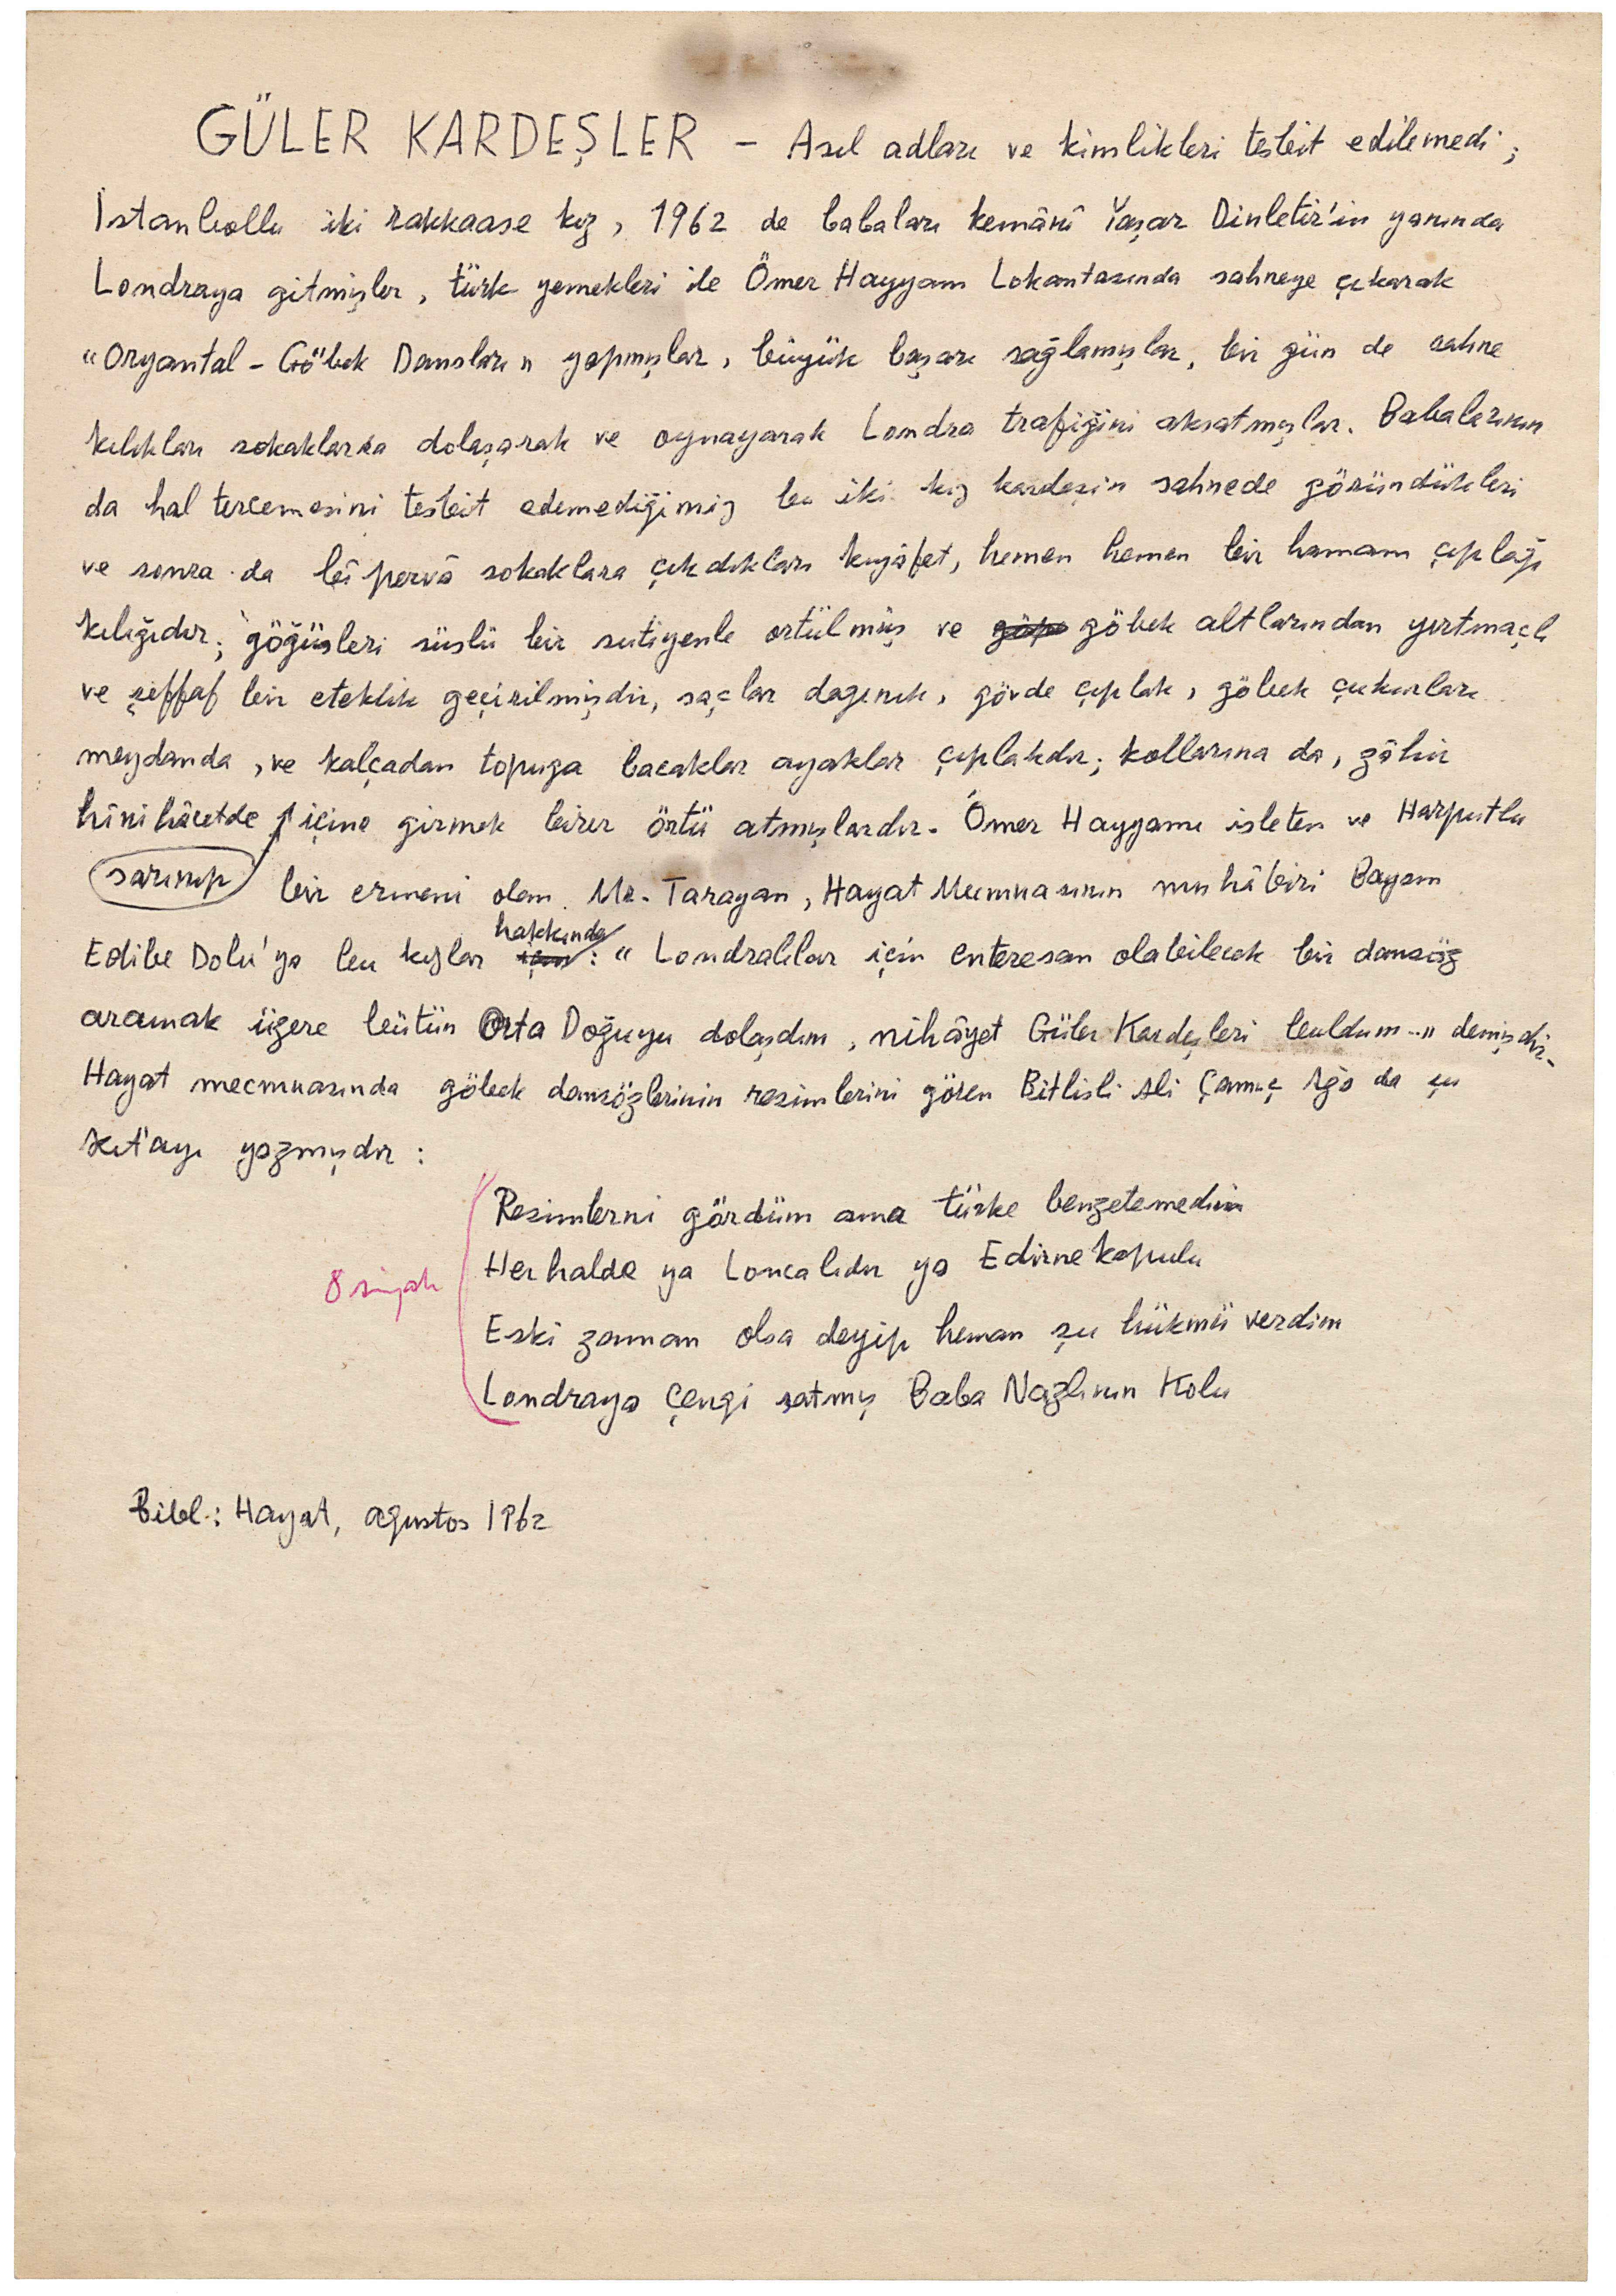 GÜLER KARDEŞLER – Asıl adları ve kimlikleri tesbit edilemedi;
İstanbollu iki rakkaase kız, 1962 de babaları kemânî Yaşar Dinletir'in yanında
Londraya gitmişler, türk yemekleri ile Ömer Hayyam Lokantasında sahneye çıkarak
"Oryantal - Göbek Dansları" yapmışlar, büyük başarı sağlamışlar, bir gün de sahne
kılıkları sokaklarda dolaşarak ve oynayarak Londra trafiğini aksatmışlar. Babalarının
da hal tercemesini tesbit edemediğimiz bu iki kız kardeşin sahnede göründükleri
ve sonra da bî pervâ sokaklara çıkdıkları kıyâfet, hemen hemen bir hamam çıplağı
kılığıdır; göğüsleri süslü bir sutiyenle örtülmüş ve göbek altlarından yırtmaçlı
ve şeffaf bir eteklik geçirilmişdir, saçlar dagınık, gövde çıplak, göbek çukurları
meydanda, ve kalçadan topuga bacaklar ayaklar çıplakdır; kollarına da, zâhir
hîni hâcetde içine girmek birer örtü atmışlardır. Ömer Hayyamı isleten ve Harputlu
sarınıp bir ermeni olan Mr. Tarayan, Hayat Mecmuasının muhâbiri Bayan
hakkında
Edibe Dolu'ya bu kızlar için: "Londralılar için enteresan olabilecek bir dansöz
aramak üzere bütün Orta Doğuyu dolaşdım, nihâyet Güler Kardeşleri buldum.." demişdir.
Hayat mecmuasında göbek dansözlerinin resimlerini gören Bitlisli Ali Çamiç Ağa da şu
kıt'ayı yazmışdır:
Resimlerni gördüm ama türke benzetemedim
Herhalde ya Loncalıdır ya Edirnekapulu
8 siyah
Eski zaman olsa deyip heman şu hükmü verdim
Londraya çengi satmış Baba Nazlının Kolu
Bibl.: Hayat, agustos 1962